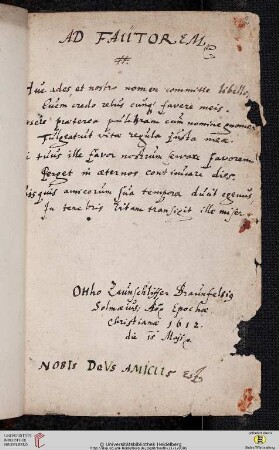 AD FAUTOREM
Huc ades et nostro nomen committe libello,
Quem credo rebus cunq favere meis.
praeterea pulchram cum nomine gnomen
vitae regula justa meae.
tuus ille favor nostrum servare favorem
Perget in aeternos continuare dies.
quis amicorum sua tempora ducit egenus,
In tenebris vitam transigit ille miser.
Ottho Zaunschliffer Braunfelsig
Solmaeus, Epochae
Christianae 1612.
die 10 Maij
NOBIS DEVS AMICUS
UNIVERSITÄTS-
BIBLIOTHEK
HEIDELBERG
© Universitätsbibliothek Heidelberg